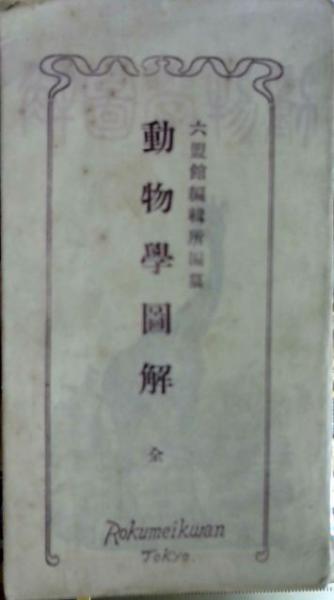 六盟館編輯所編纂
動物學圖解
全
Rokumeikwan
Tokyo.